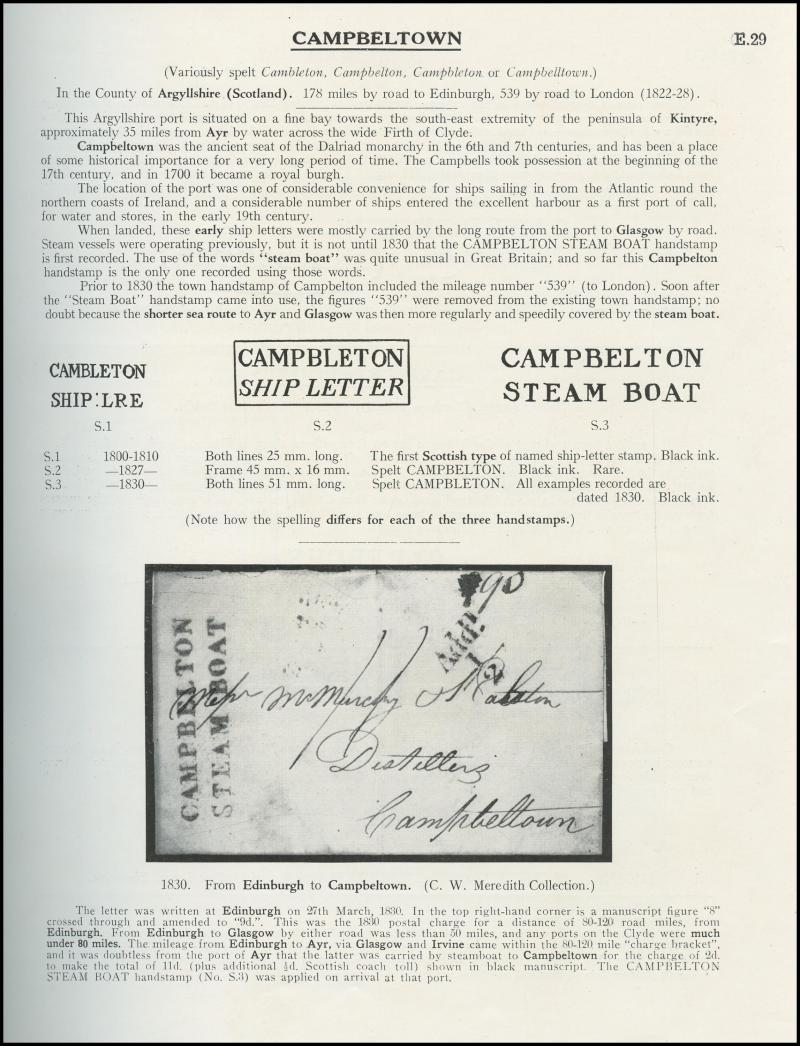 CAMPBELTOWN
E.29
(Variously spelt Cambleton, Campbelton, Campbleton or Campbelltown.)
In the County of Argyllshire (Scotland). 178 miles by road to Edinburgh, 539 by road to London (1822-28).
This Argyllshire port is situated on a fine bay towards the south-east extremity of the peninsula of Kintyre,
approximately 35 miles from Ayr by water across the wide Firth of Clyde.
Campbeltown was the ancient seat of the Dalriad monarchy in the 6th and 7th centuries, and has been a place
of some historical importance for a very long period of time. The Campbells took possession at the beginning of the
17th century, and in 1700 it became a royal burgh.
The location of the port was one of considerable convenience for ships sailing in from the Atlantic round the
northern coasts of Ireland, and a considerable number of ships entered the excellent harbour as a first port of call,
for water and stores, in the early 19th century.
When landed, these early ship letters were mostly carried by the long route from the port to Glasgow by road.
Steam vessels were operating previously, but it is not until 1830 that the CAMPBELTON STEAM BOAT handstamp
is first recorded. The use of the words "steam boat" was quite unusual in Great Britain; and so far this Campbelton
handstamp is the only one recorded using those words.
Prior to 1830 the town handstamp of Campbelton included the mileage number "539" (to London). Soon after
the "Steam Boat" handstamp came into use, the figures "539" were removed from the existing town handstamp; no
doubt because the shorter sea route to Ayr and Glasgow was then more regularly and speedily covered by the steam boat.
CAMBLETON
SHIP:LRE
S.1
CAMPBLETON
SHIP LETTER
S.2
CAMPBELTON
STEAM BOAT
S.3
S.1 1800-1810 Both lines 25 mm. long. The first Scottish type of named ship-letter stamp. Black ink.
S.2 —1827— Frame 45 mm. x 16 mm. Spelt CAMPBELTON. Black ink. Rare.
S.3 —1830— Both lines 51 mm. long. Spelt CAMPBLETON. All examples recorded are
dated 1830. Black ink.
(Note how the spelling differs for each of the three handstamps.)
CAMPBELTON
STEAM BOAT
90
Addl.
Messrs McMurchy & Ralston
Distillers
Campbeltown
1830. From Edinburgh to Campbeltown. (C. W. Meredith Collection.)
The letter was written at Edinburgh on 27th March, 1830. In the top right-hand corner is a manuscript figure "8"
crossed through and amended to "9d.". This was the 1830 postal charge for a distance of 80-120 road miles, from
Edinburgh. From Edinburgh to Glasgow by either road was less than 50 miles, and any ports on the Clyde were much
under 80 miles. The mileage from Edinburgh to Ayr, via Glasgow and Irvine came within the 80-120 mile "charge bracket",
and it was doubtless from the port of Ayr that the latter was carried by steamboat to Campbeltown for the charge of 2d.
to make the total of 11d. (plus additional ½d. Scottish coach toll) shown in black manuscript. The CAMPBELTON
STEAM BOAT handstamp (No. S.3) was applied on arrival at that port.